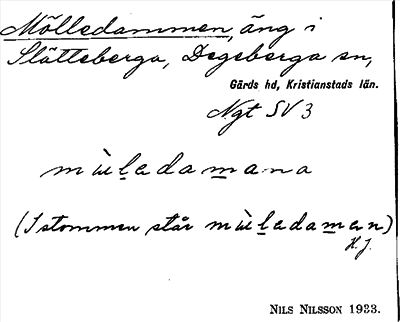 Mölledammen, äng i
Slätteberga, Degeberga sn,
Gärds hd, Kristianstads län.
Ngt SV 3
mùḻedamana
(I stommen står mùḻedamaṉ)
H. J.
NILS NILSSON 1933.